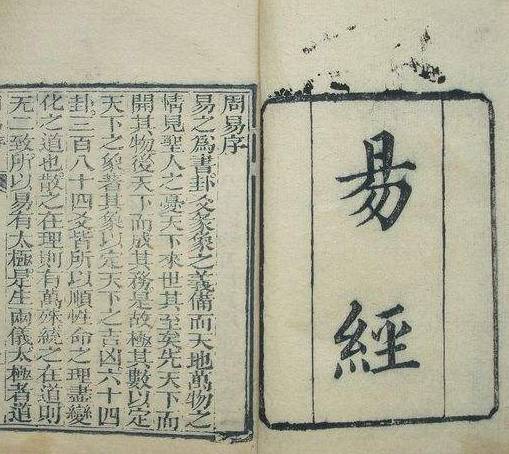 易經
周易序
易之為書卦爻彖象之義備而天地萬物之
情見聖人之憂天下來世其至矣先天下而
開其物後天下而成其務是故極其數以定
天下之象著其象以定天下之吉凶六十四
卦三百八十四爻皆所以順性命之理盡變
化之道也散之在理則有萬殊統之在道則
无二致所以易有太極是生兩儀太極者道